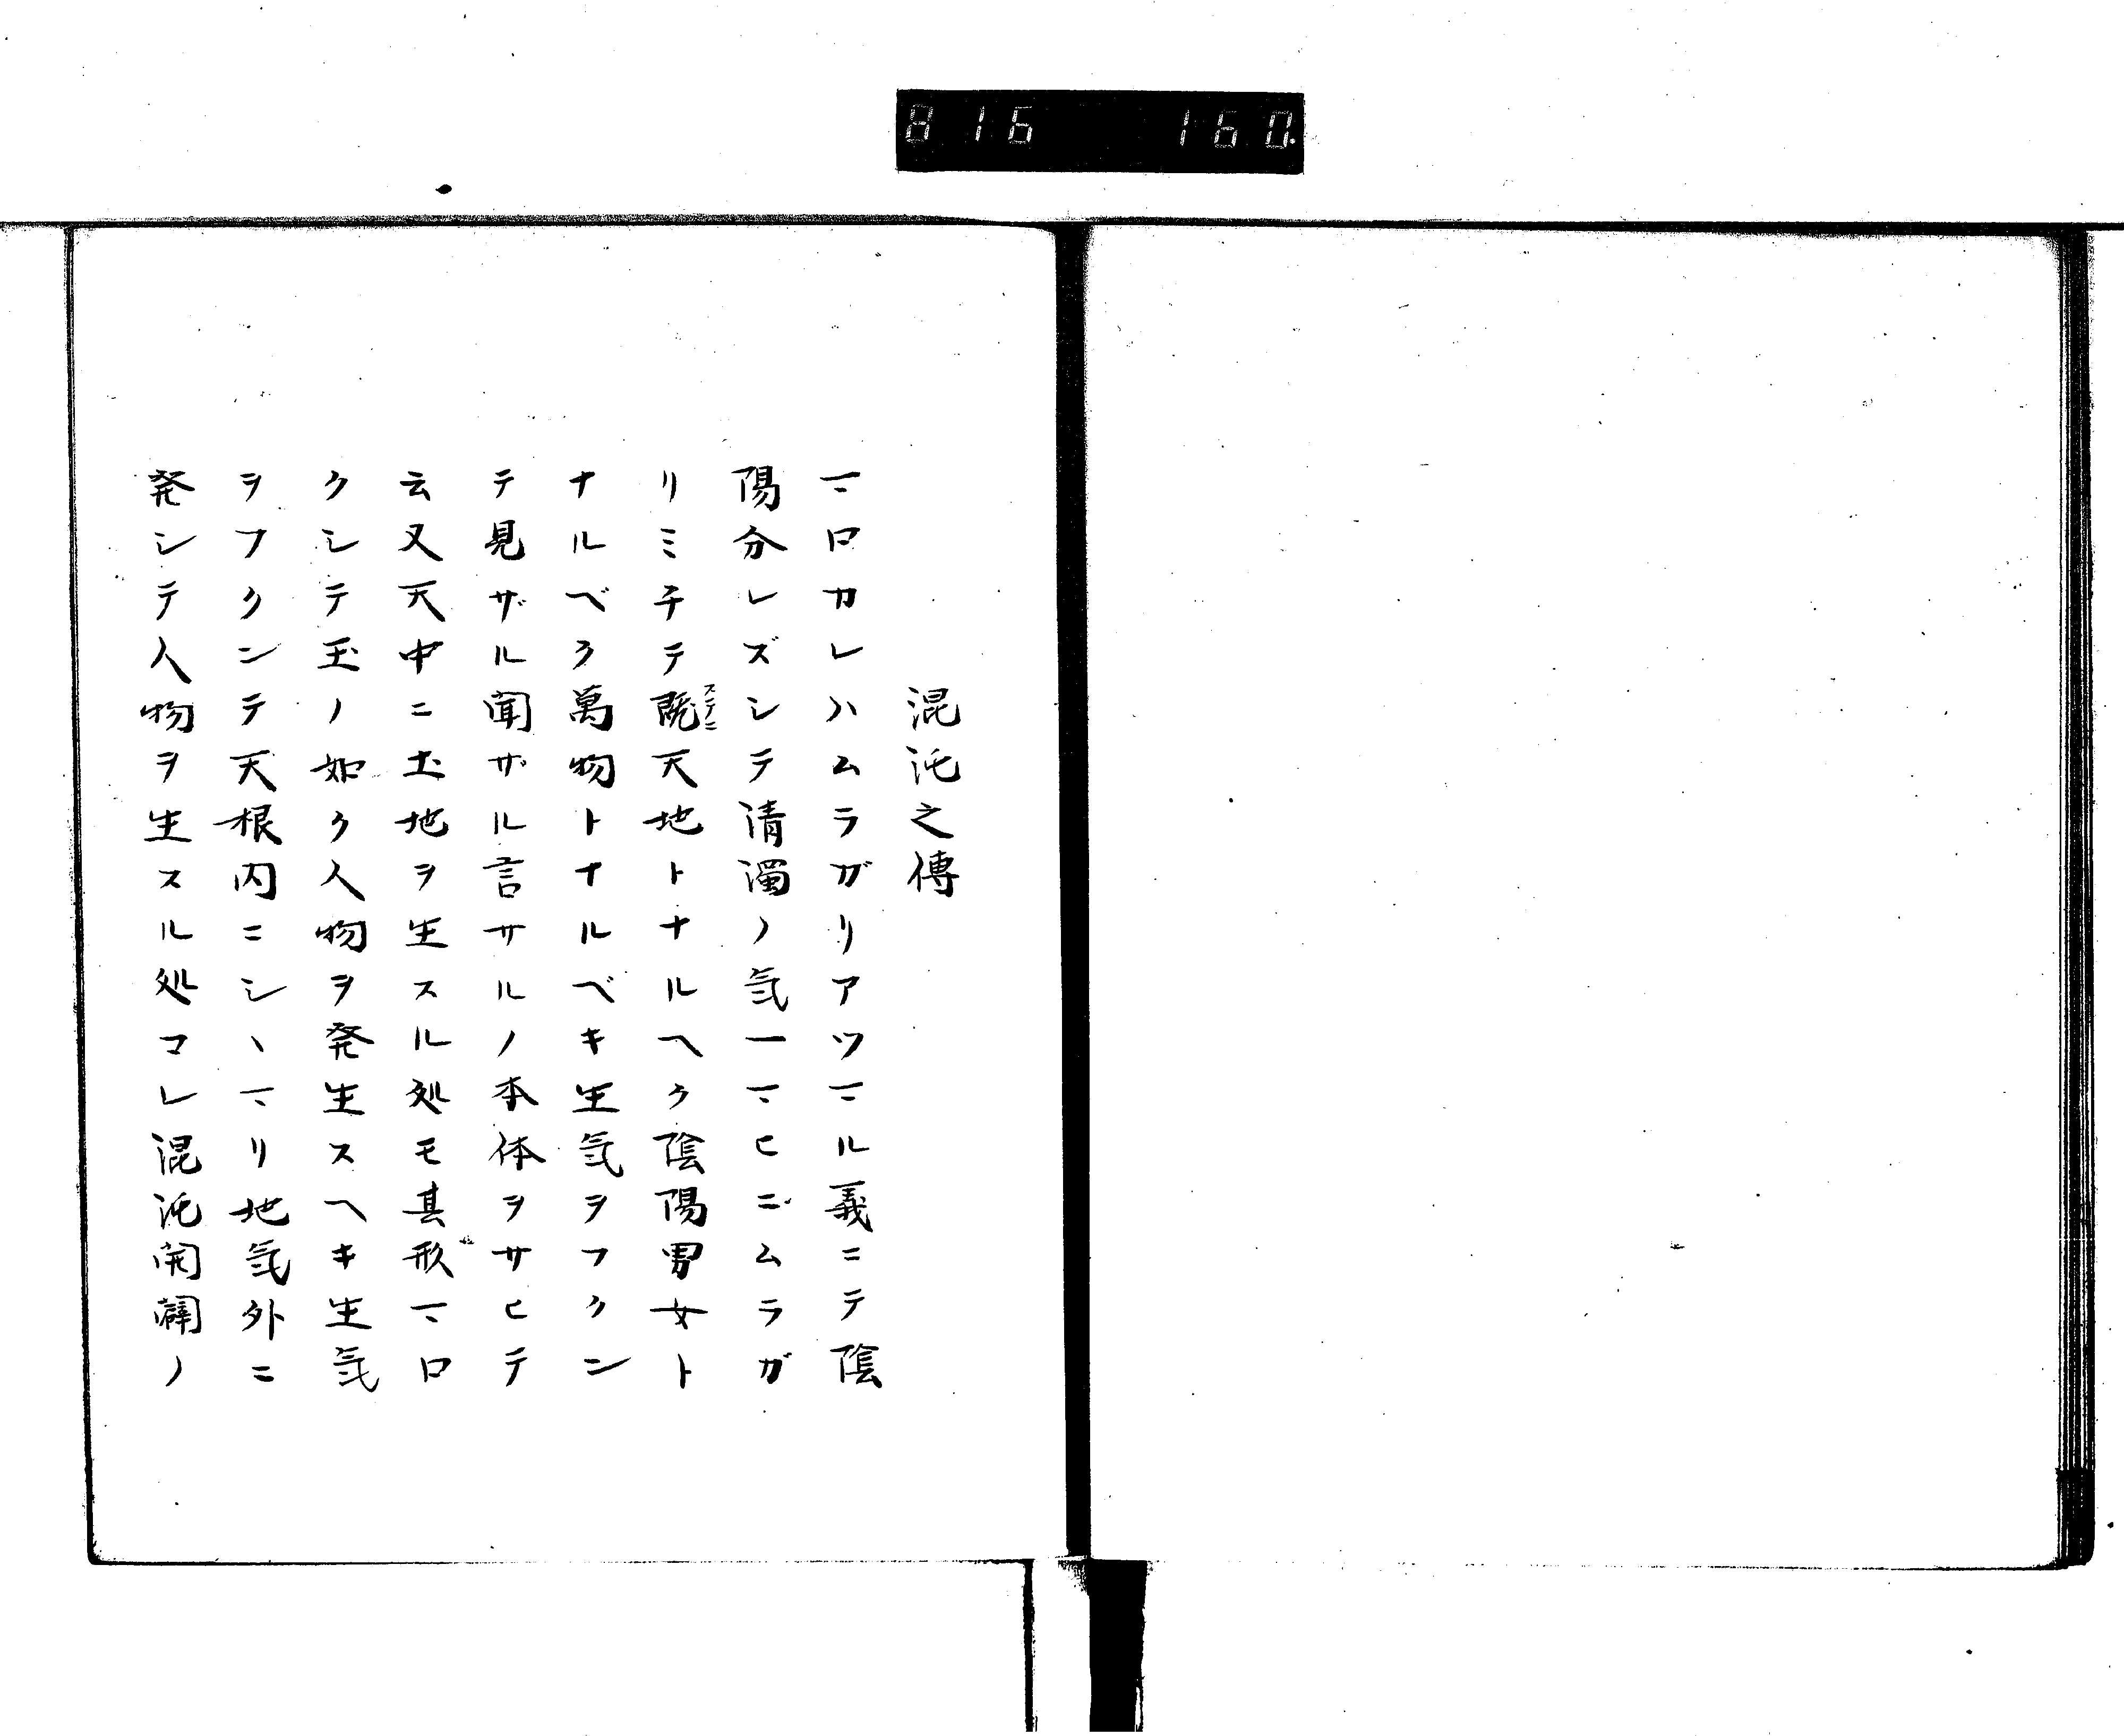 816 160.
混沌之傳
マロカレハムラガリアツマル義ニテ陰
陽分レズシテ清濁ノ気一マヒニムラガ
リミチテ既天地トナルヘク陰陽男女ト
スデニ
ナルベク萬物トナルベキ生気ヲフクン
テ見ザル聞ザル言サルノ本体ヲサヒテ
云又天中ニ土地ヲ生スル処モ其形マロ
クシテ玉ノ如ク人物ヲ発生スヘキ生気
ヲフクンテ天根内ニシヽマリ地気外ニ
発シテ人物ヲ生スル処マレ混沌開闢ノ